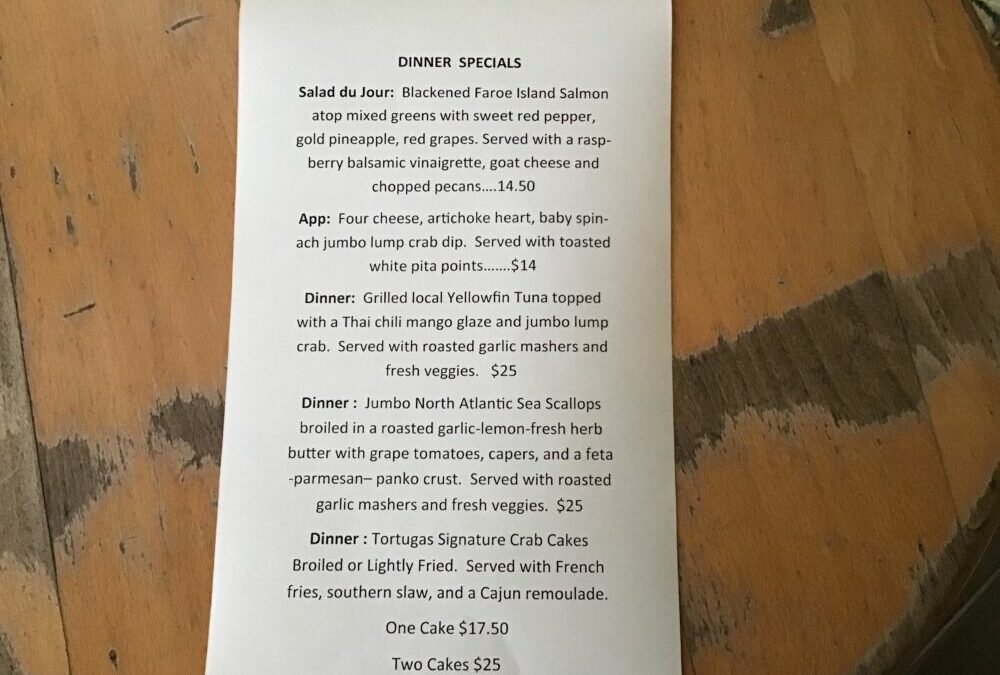 DINNER SPECIALS
Salad du Jour: Blackened Faroe Island Salmon
atop mixed greens with sweet red pepper,
gold pineapple, red grapes. Served with a rasp-
berry balsamic vinaigrette, goat cheese and
chopped pecans....14.50
App: Four cheese, artichoke heart, baby spin-
ach jumbo lump crab dip. Served with toasted
white pita points.......$14
Dinner: Grilled local Yellowfin Tuna topped
with a Thai chili mango glaze and jumbo lump
crab. Served with roasted garlic mashers and
fresh veggies. $25
Dinner : Jumbo North Atlantic Sea Scallops
broiled in a roasted garlic-lemon-fresh herb
butter with grape tomatoes, capers, and a feta
-parmesan– panko crust. Served with roasted
garlic mashers and fresh veggies. $25
Dinner : Tortugas Signature Crab Cakes
Broiled or Lightly Fried. Served with French
fries, southern slaw, and a Cajun remoulade.
One Cake $17.50
Two Cakes $25